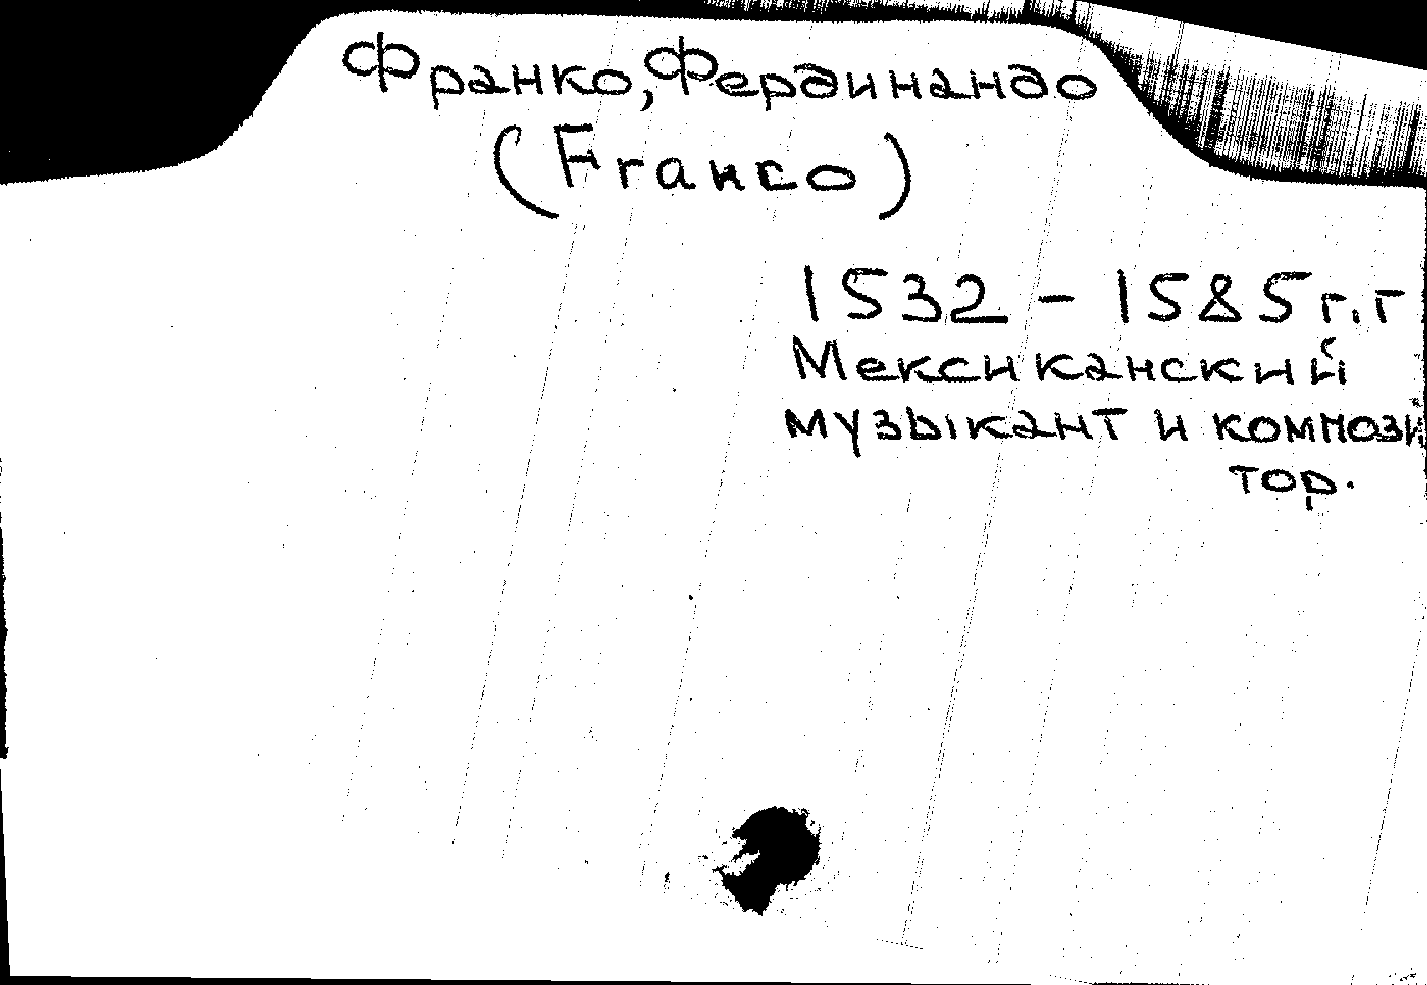 Франко, Фердинандо
(Franco)
1532 - 1585 г.г
Мексиканский
музыкант и компози
тор.